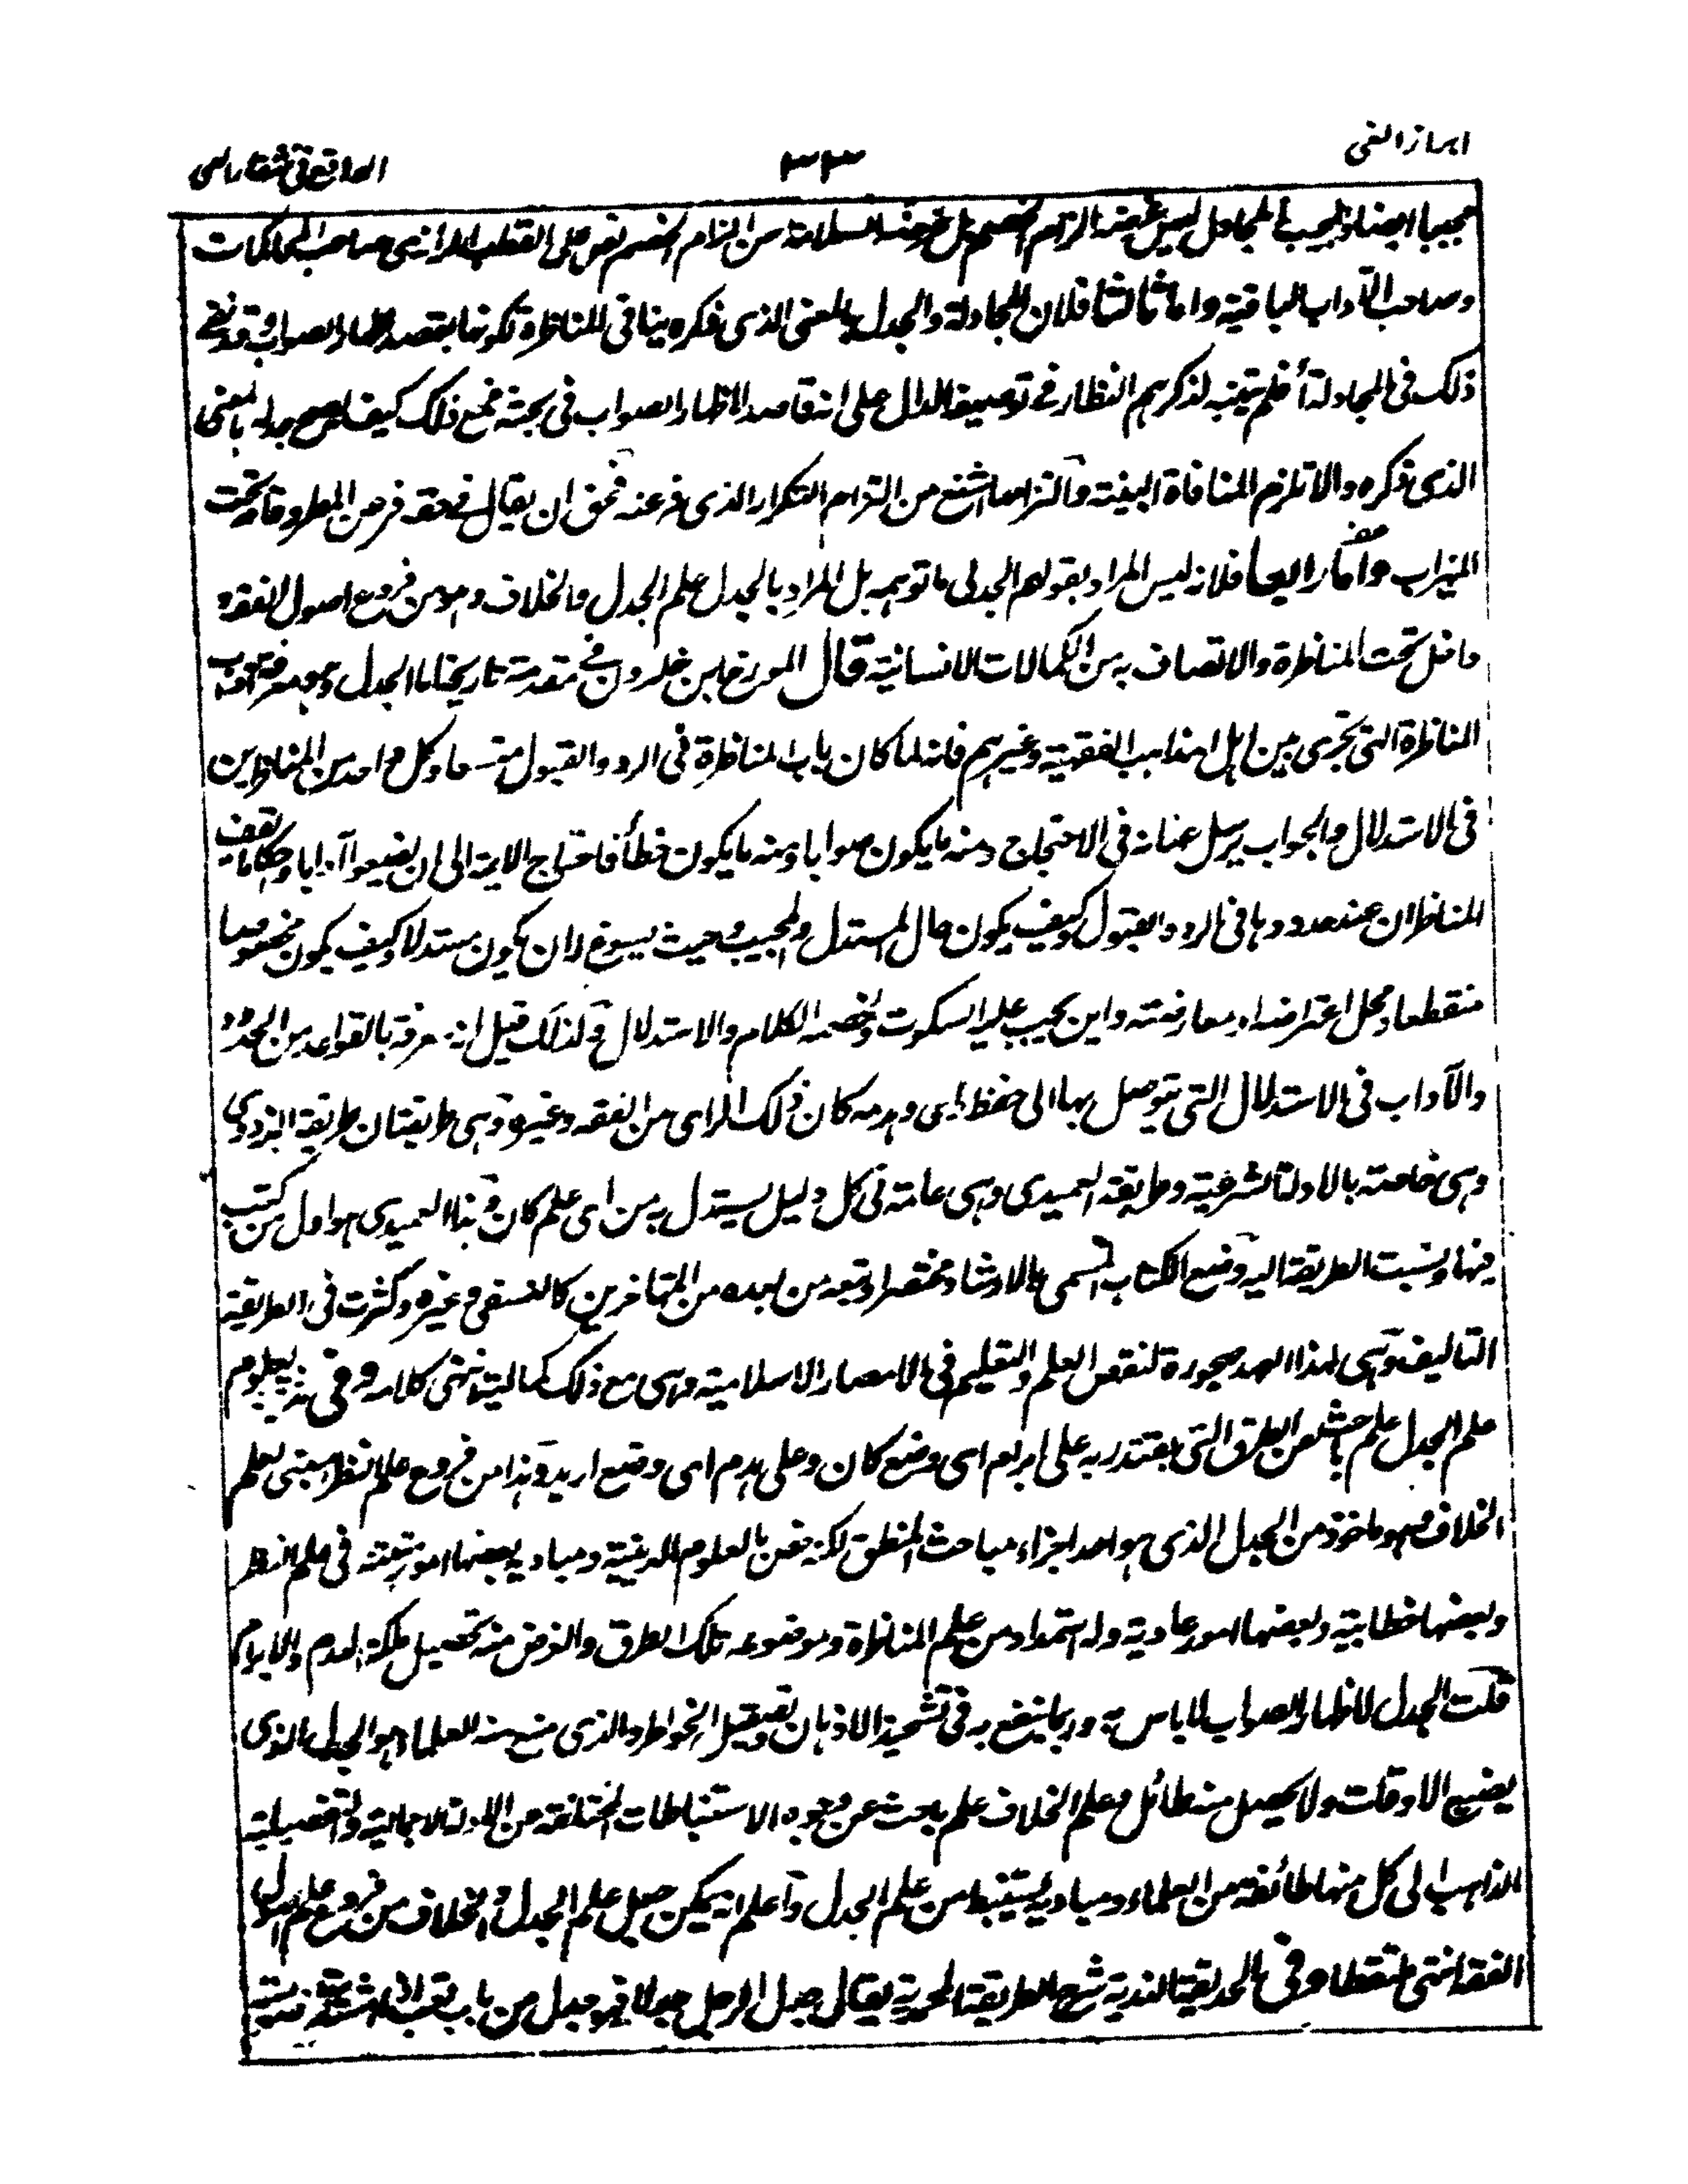 ابراز الغي
٣٣
الواقع في شفاء العي
مجيبا ايضا والمجيب المجادل ليس غرضه الزام الخصم بل غرضه السلامة من الزام الخصم نص على القطب الرازي صاحب المحاكمات
وصاحب الآداب الباقية واما ثالثا فلان المجادلة والجدل بالمعنى الذي ذكره ينافي المناظرة لكونها بقصد اظهار الصواب وقد نفى
ذلك في المجادلة أفلم يتنبه لذكرهم النظار في توصيفه الدال على انه قاصد لاظهار الصواب في بحثه فمع ذلك كيف يصح جدله بالمعنى
الذي ذكره والا تلزم المنافاة البينة والتزامها اشنع من التزام التكرار الذي فر عنه فحق ان يقال في حقه فر من المطر وقام تحت
الميزاب واما رابعا فلانه ليس المراد بقولهم الجدلي ما توهمه بل المراد بالجدل علم الجدل والخلاف وهو من فروع اصول الفقه و
داخل تحت المناظرة والاتصاف به من الكمالات الانسانية قال المورخ ابن خلدون في مقدمة تاريخه اما الجدل وهو معرفة آداب
المناظرة التي تجري بين اهل المذاهب الفقهية وغيرهم فانه لما كان باب المناظرة في الرد والقبول متسعا وكل واحد من المناظرين
في الاستدلال والجواب يرسل عنانه في الاحتجاج ومنه ما يكون صوابا ومنه ما يكون خطأ فاحتاج الائمة الى ان يضعوا آدابا واحكاما يقف
المناظران عند حدودها في الرد والقبول وكيف يكون حال المستدل والمجيب وحيث يسوغ له ان يكون مستدلا وكيف يكون مخصوصا
منقطعا ومحل اعتراضه او معارضته واين يجب عليه السكوت ولخصمه الكلام والاستدلال ولذلك قيل انه معرفة بالقواعد من الحدود
والآداب في الاستدلال التي يتوصل بها الى حفظ رأي وهدمه كان ذلك الرأي من الفقه وغيره وهي طريقتان طريقة البزدوي
وهي خاصة بالادلة الشرعية وطريقة العميدي وهي عامة في كل دليل يستدل به من اي علم كان وهذا العميدي هو اول من كتب
فيها ونسبت الطريقة اليه وضع الكتاب المسمى بالارشاد مختصرا وتبعه من بعده من المتاخرين كالنسفي وغيره وكثرت في الطريقة
التآليف وهي لهذا العهد مهجورة لنقص العلم والتعليم في الامصار الاسلامية وهي مع ذلك كمالية انتهى كلامه وفي العلوم
علم الجدل علم باحث عن الطرق التي يقتدر به على ابرام اي وضع كان وعلى هدم اي وضع اريد وهذا من فروع علم النظر مبنى لعلم
الخلاف وهو ماخوذ من الجدل الذي هو احد اجزاء مباحث المنطق لكنه خص بالعلوم الدينية ومباديه بعضها امور مبينة في علم النظر
وبعضها خطابية وبعضها امور عادية وله استمداد من علم المناظرة وموضوعه تلك الطرق والغرض منه تحصيل ملكة الهدم والابرام
قلت الجدل لاظهار الصواب لا باس به وربما ينتفع به في تشحيذ الاذهان وتصقيل الخواطر والذي منع منه العلماء هو الجدل الذي
يضيع الاوقات ولا يحصل منه طائل وعلم الخلاف علم باحث عن وجوه الاستنباطات المختلفة من الادلة الاجمالية والتفصيلية
الذاهب الى كل منها طائفة من العلماء ومباديه يستنبط من علم الجدل واعلم انه يمكن جعل علم الجدل والخلاف من فروع علم اصول
الفقه انتهى ملتقطا وفي الحديقة الندية شرح الطريقة المحمدية يقال جدل الرجل جدلا فهو جدل من باب تعب اذا اشتدت